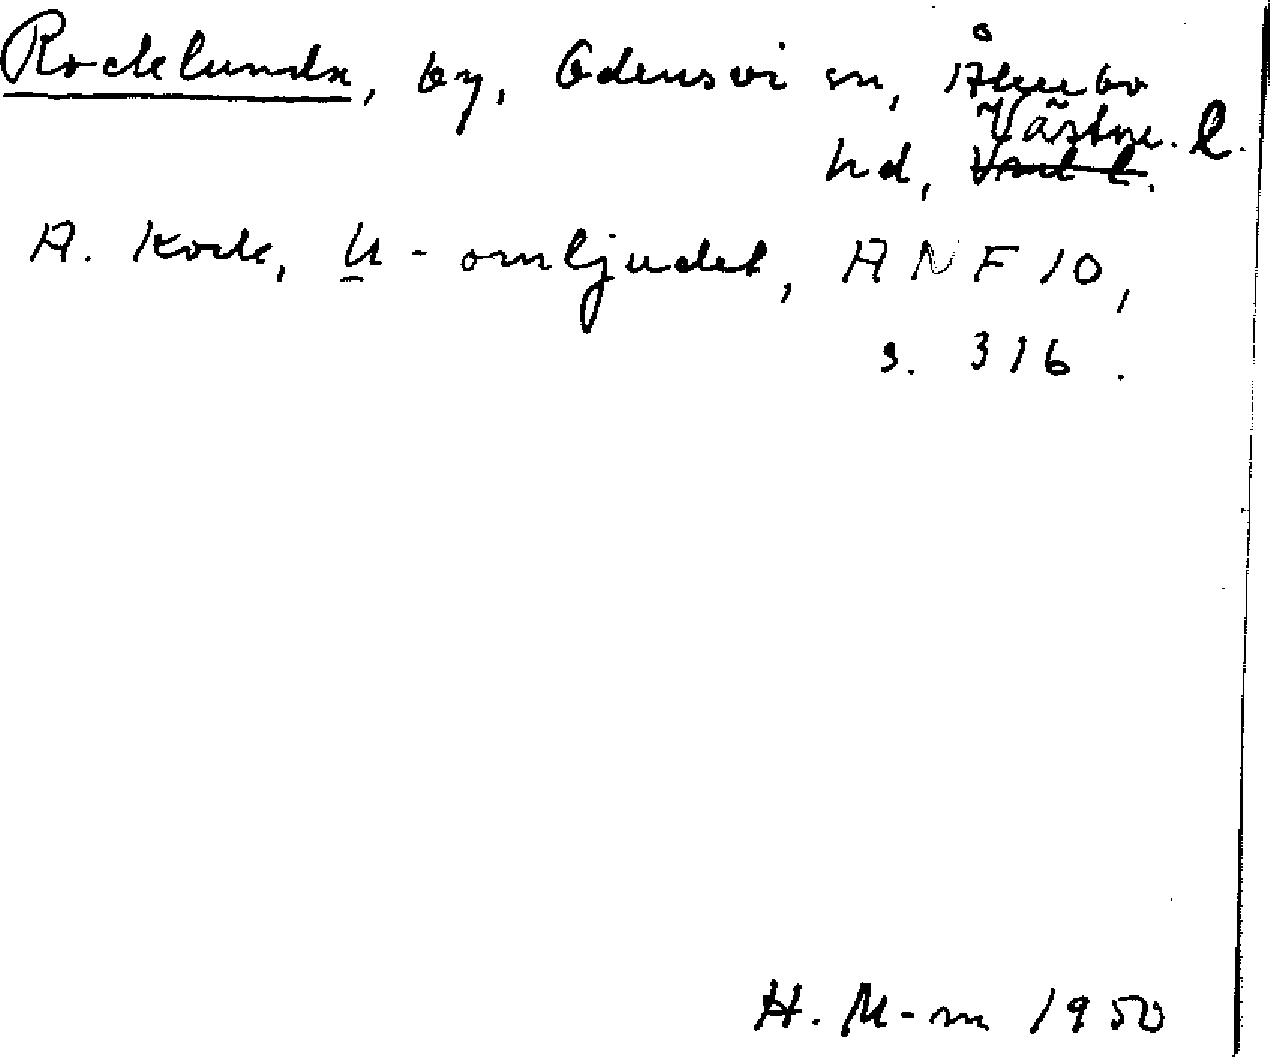 Rocklunda, by, Odensvi sn, Åkerbo
Västm. l.
hd, Vml l.
A. Kock, U-omljudet, ANF 10,
s. 316.
H. M-m 1950